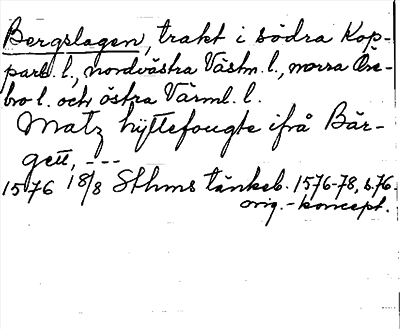 Bergslagen, trakt i södra Kop-
parb. l., nordvästra Västm. l., norra Öre-
bro l. och östra Värml. l.
Matz hyttefougte ifrå Bär-
gett, ---
1576 18/8 Sthms tänkeb. 1576-78, s. 76.
orig.-koncept.